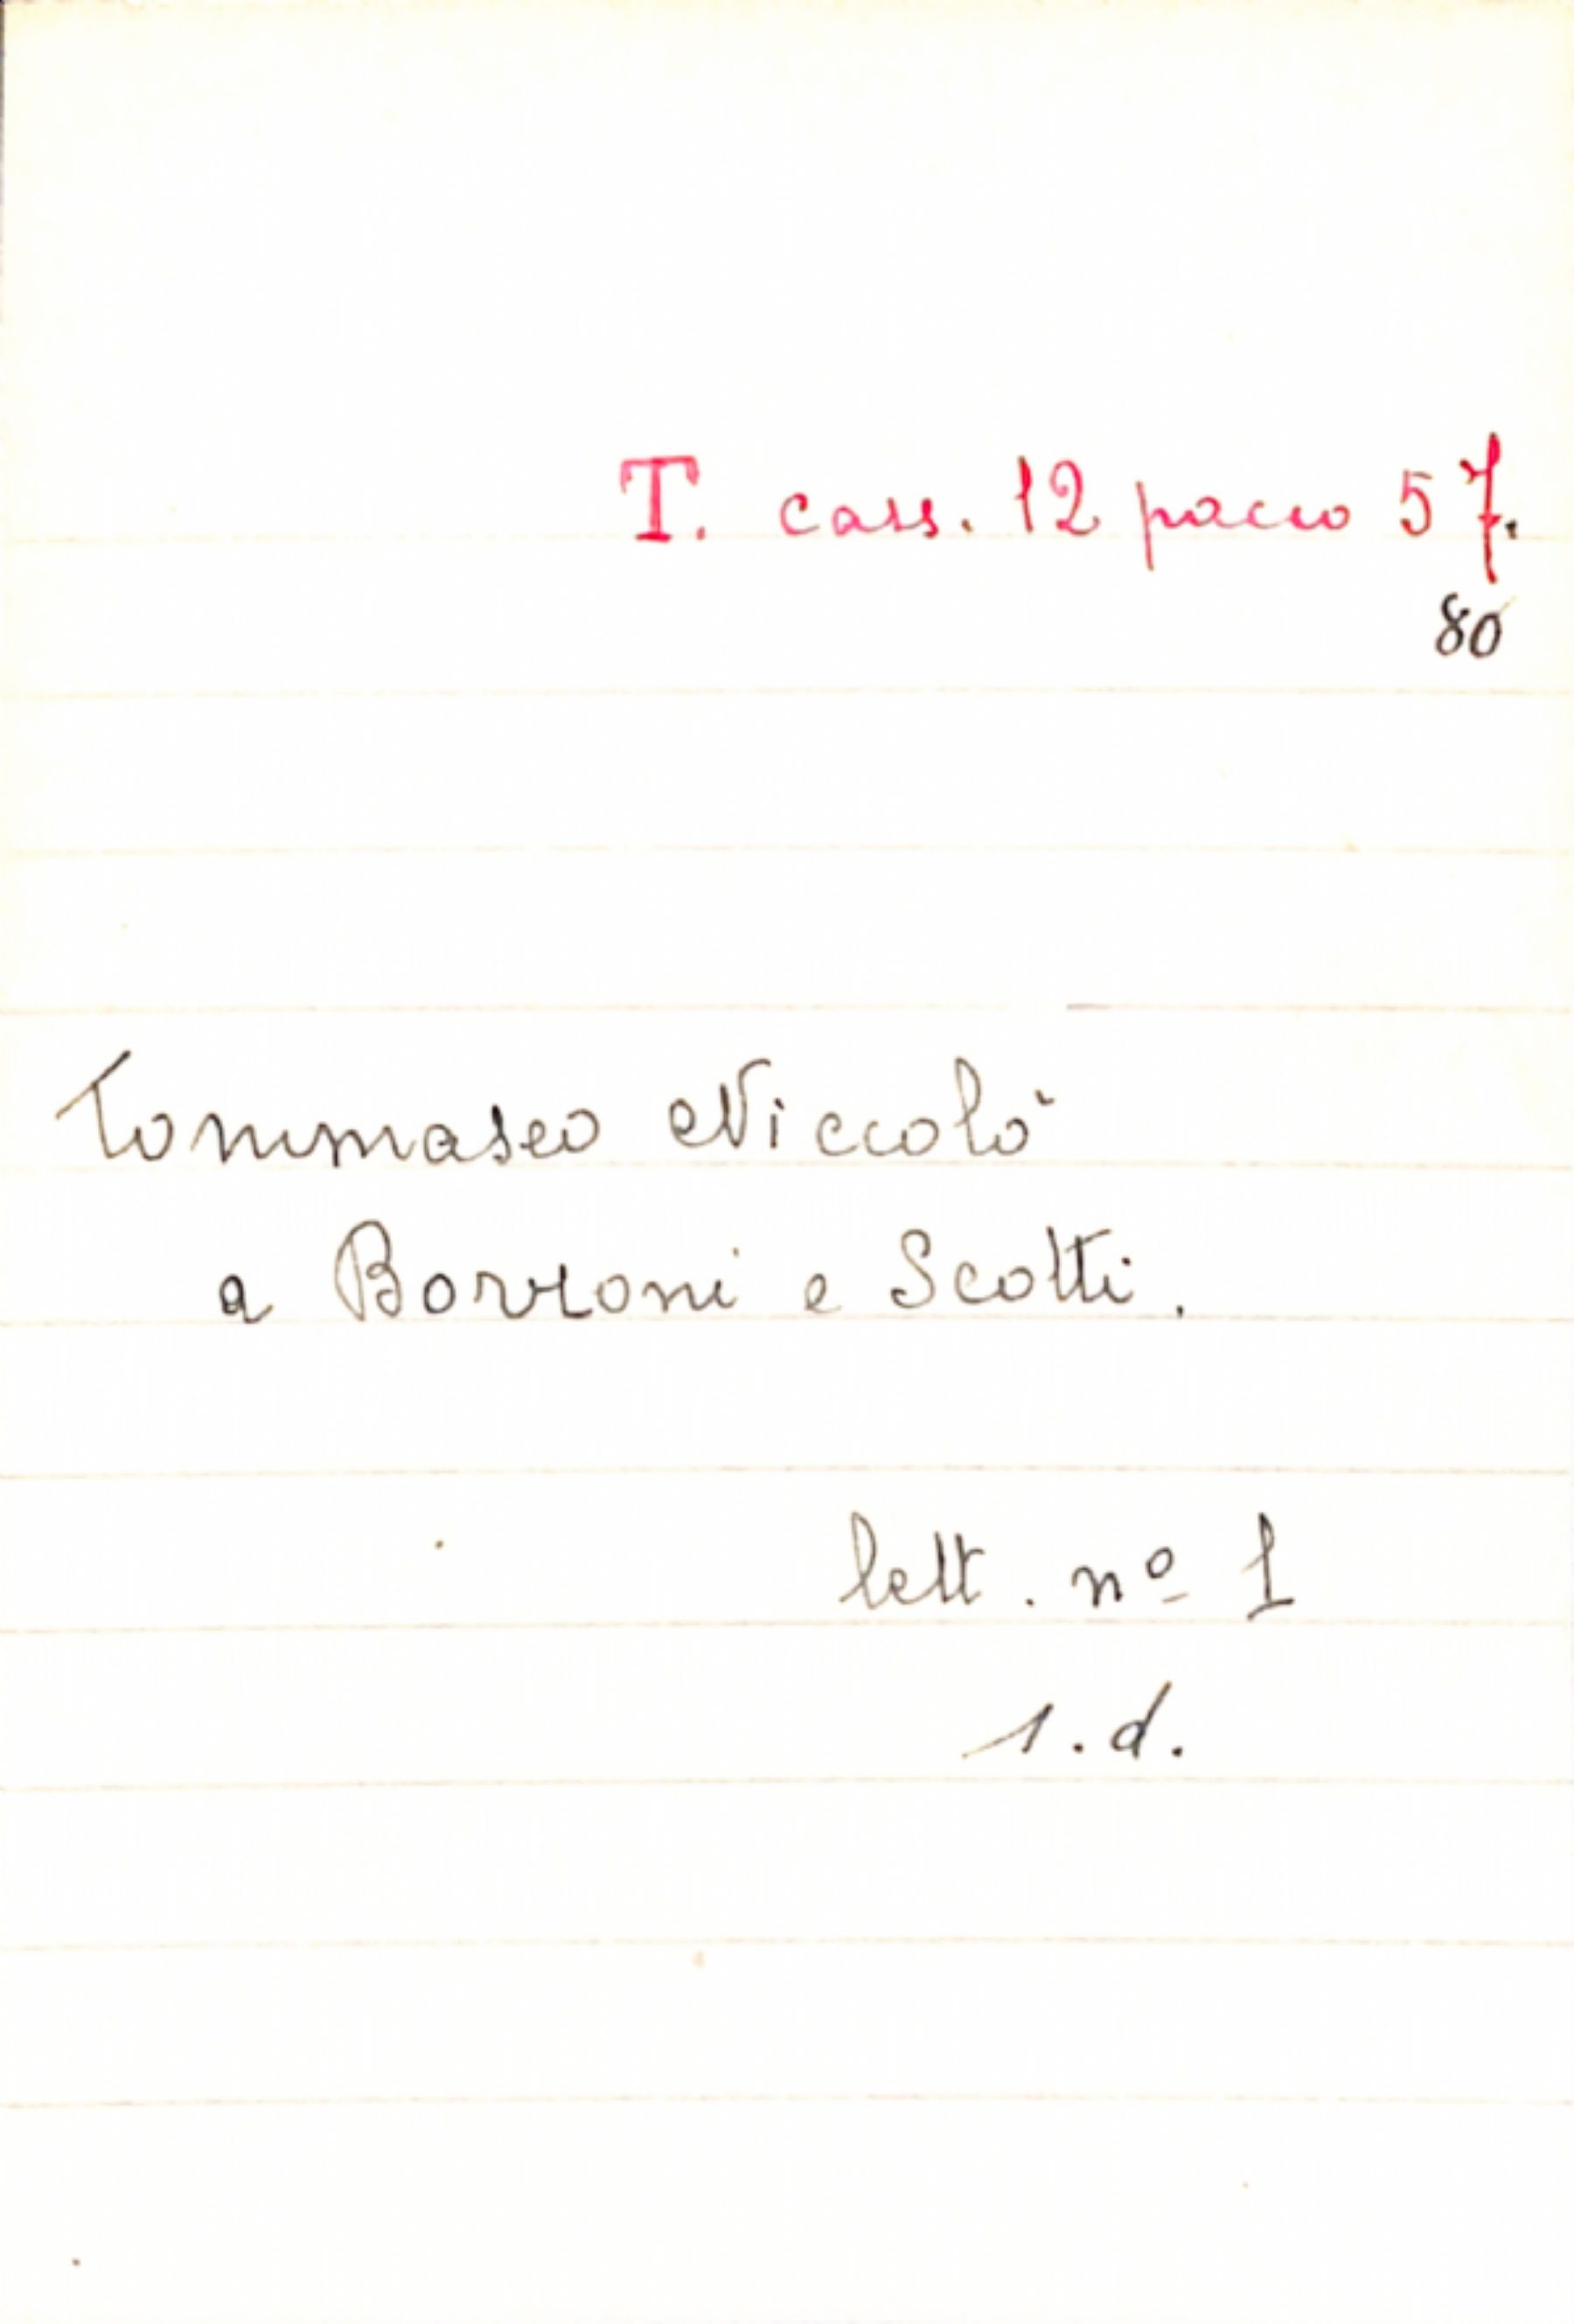 T. cass. 12 pacco 57.
80
Tommaseo Niccolò
a Borroni e Scotti.
lett. nº 1
s.d.